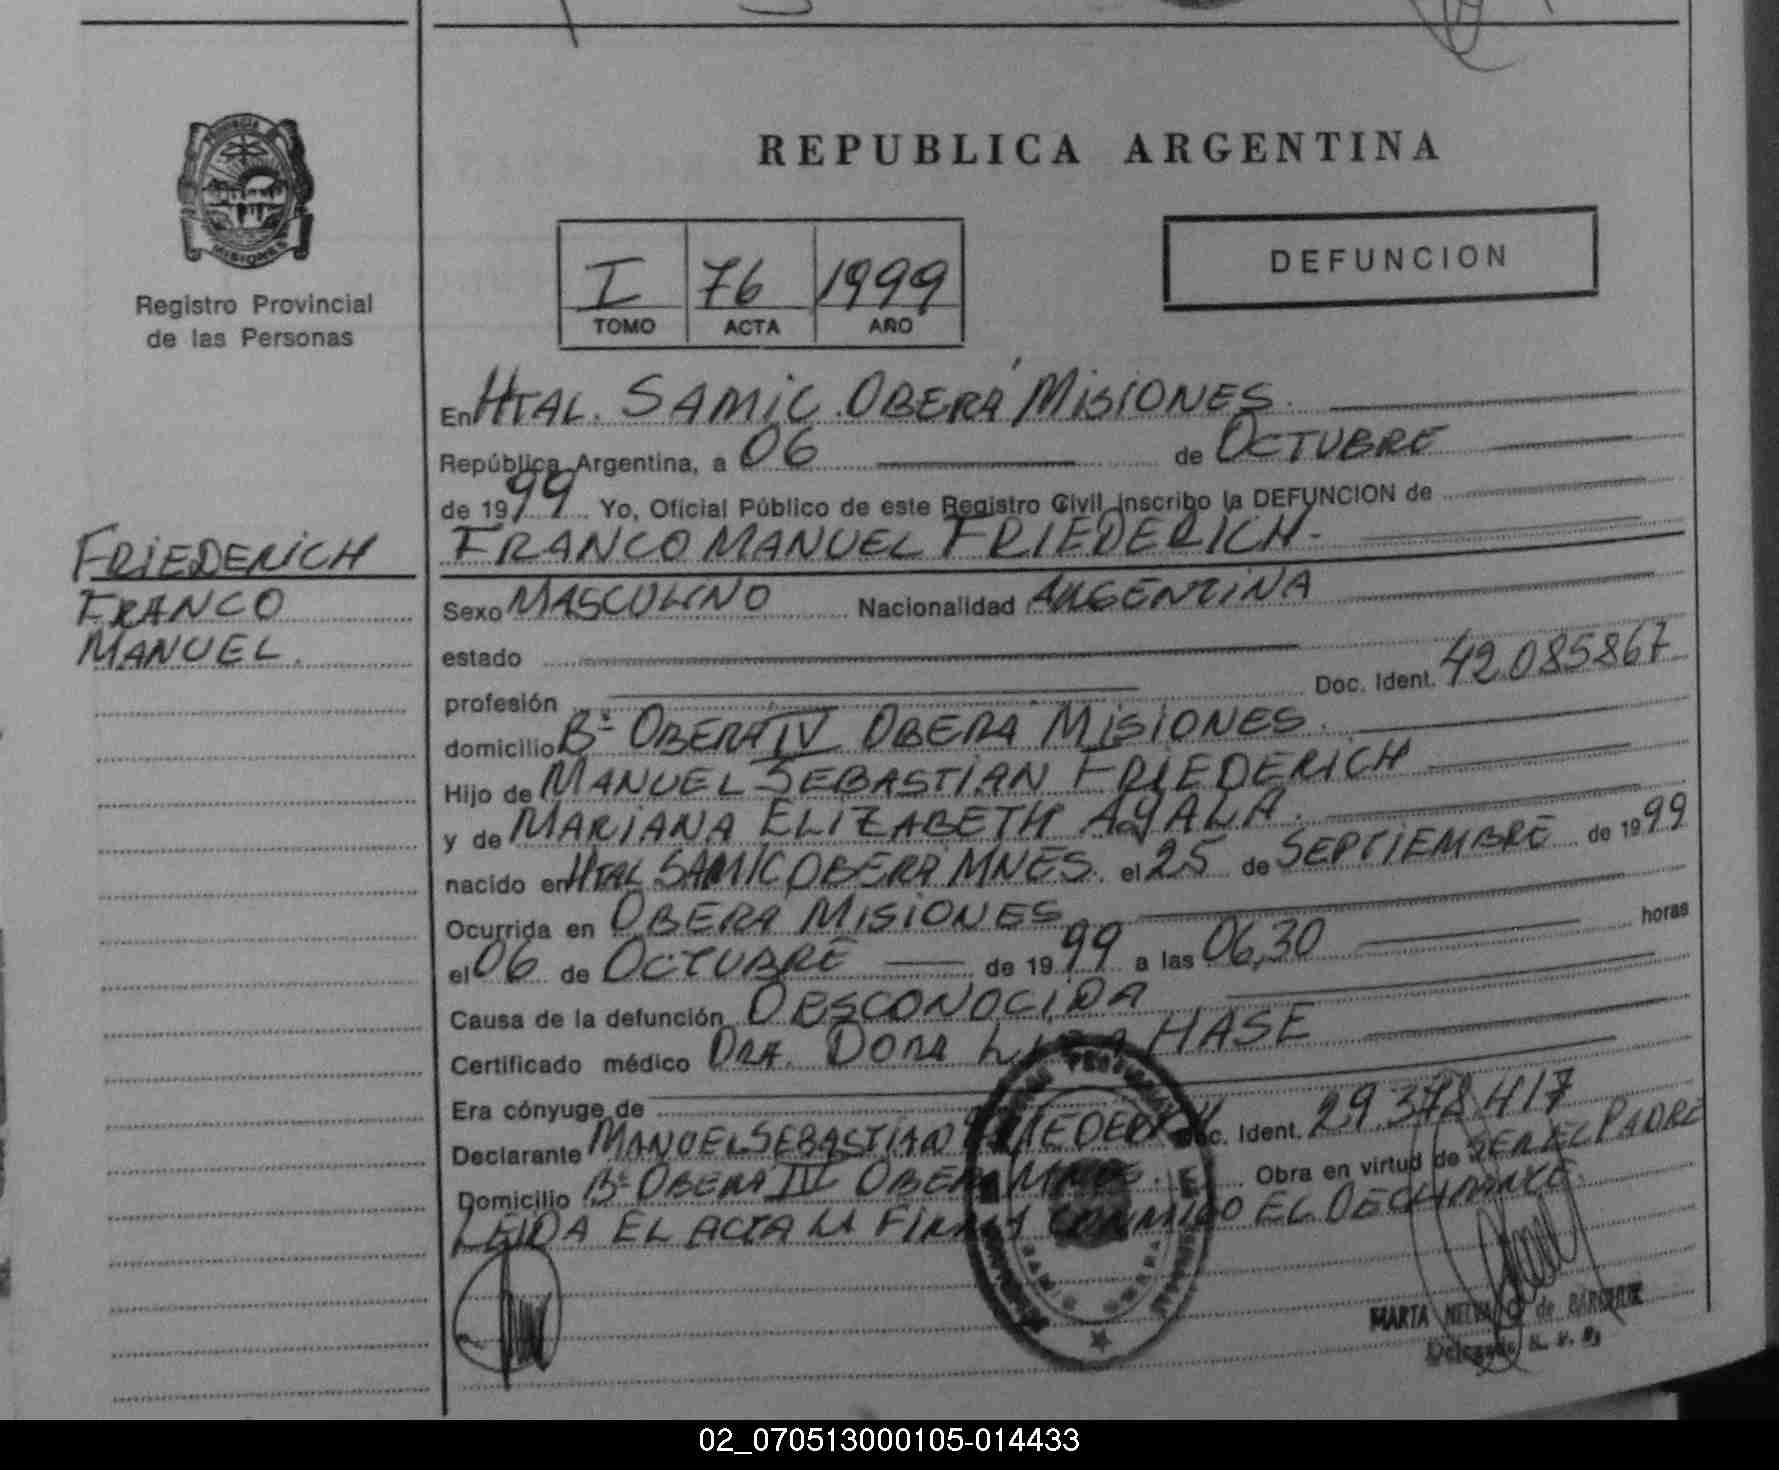 REPUBLICA ARGENTINA
PROVINCIA
MISIONES
Registro Provincial
de las Personas
I 76 1999
TOMO ACTA AÑO
DEFUNCION
En HTAL. SAMIC OBERÁ MISIONES.
República Argentina, a 06 de OCTUBRE
de 1999 Yo, Oficial Público de este Registro Civil inscribo la DEFUNCION de
FRANCO MANUEL FRIEDERICH.
FRIEDERICH
FRANCO
MANUEL.
Sexo MASCULINO Nacionalidad ARGENTINA
estado
profesión Doc. Ident. 42.085.867
domicilio Bº OBERA IV OBERA MISIONES.
Hijo de MANUEL SEBASTIAN FRIEDERICH
y de MARIANA ELIZABETH AYALA.
nacido en HTAL SAMIC OBERA MNES. el 25 de SEPTIEMBRE de 1999
Ocurrida en OBERA MISIONES
el 06 de OCTUBRE de 1999 a las 06,30 horas
Causa de la defunción DESCONOCIDA
Certificado médico DRA. DORA HASE
Era cónyuge de
Declarante MANUEL SEBASTIAN FRIEDERICH Doc. Ident. 29.378.417
Domicilio Bº OBERA IV OBERA MNES. Obra en virtud de SER EL PADRE
LEIDA EL ACTA LA FIRMA CONMIGO EL DECLARANTE.
MARTA de
Delegada
02_070513000105-014433